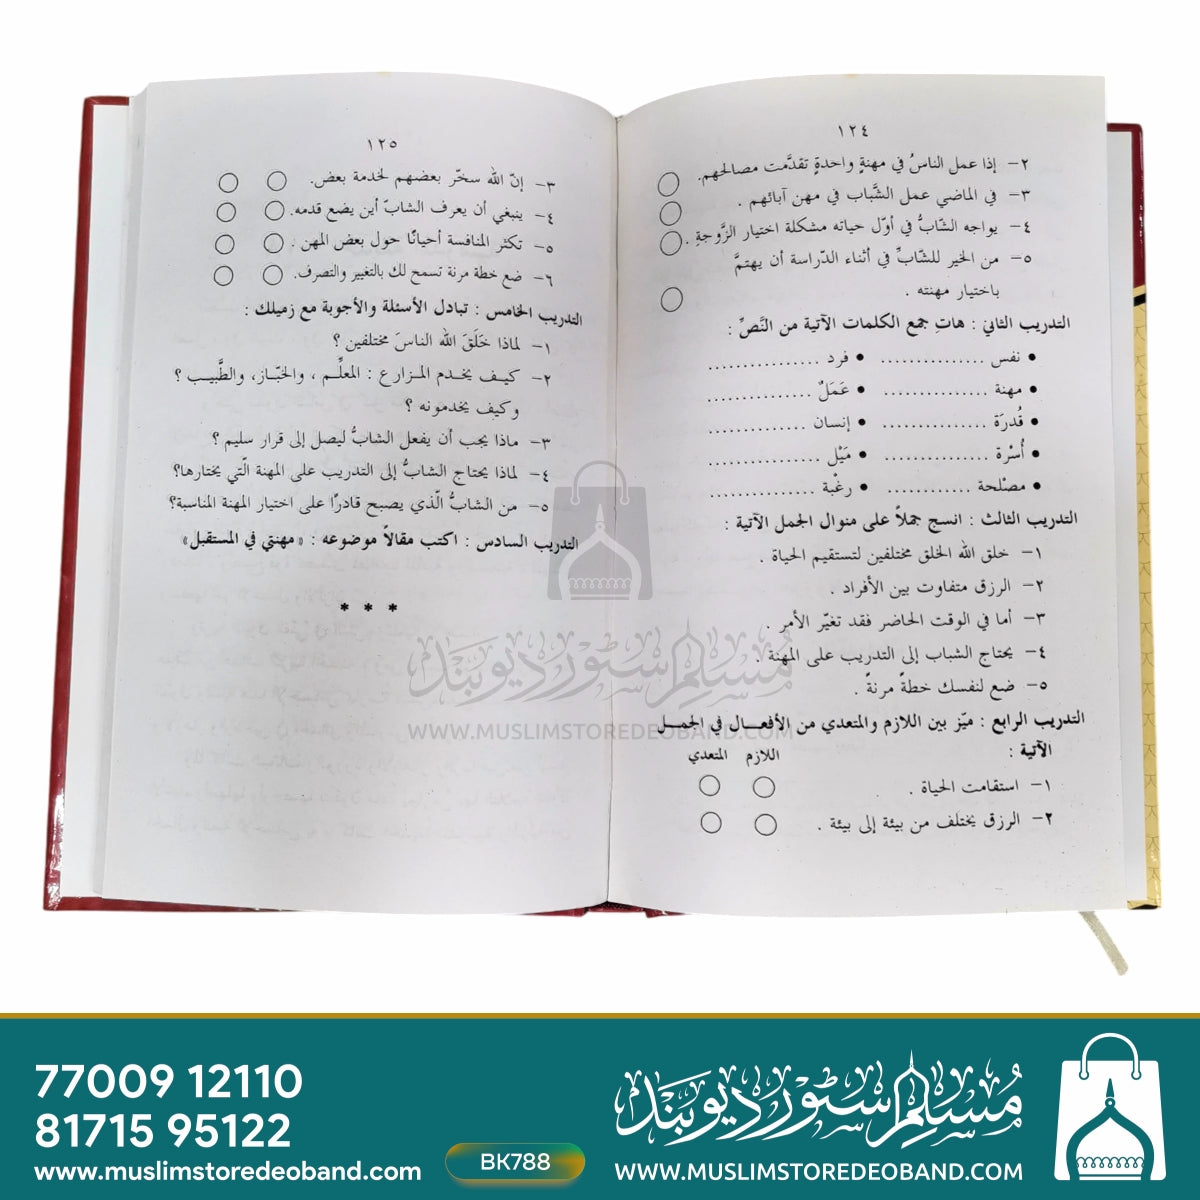 ١٢٤
٢– إذا عمل الناسُ في مهنةٍ واحدةٍ تقدَّمت مصالحهم.
٣– في الماضي عمل الشَّباب في مهن آبائهم .
٤– يواجه الشّابُّ في أوّل حياته مشكلة اختيار الزَّوجةِ .
٥– من الخير للشّابِّ في أثناء الدّراسة أن يهتمَّ
باختيار مهنته .
التدريب الثاني : هاتِ جمع الكلمات الآتية من النَّصِّ :
• نفس ............... • فرد ................
• مهنة ............... • عَمَلٌ ...............
• قُدرَة ............... • إنسان ..............
• أُسْرة ............... • مَيْل ................
• مصْلحة ............ • رغْبة ...............
التدريب الثالث : انسج جملاً على منوال الجمل الآتية :
١– خلق الله الخلق مختلفين لتستقيم الحياة .
٢– الرزق متفاوت بين الأفراد .
٣– أما في الوقت الحاضر فقد تغيّر الأمر .
٤– يحتاج الشباب إلى التدريب على المهنة .
٥– ضع لنفسك خطةً مرنةً .
التدريب الرابع : ميّز بين اللازم والمتعدي من الأفعـــال في الجمـل
الآتية :
اللازم المتعدي
١– استقامت الحياة .
٢– الرزق يختلف من بيئة إلى بيئة .
١٢٥
٣– إنّ الله سخّر بعضهم لخدمة بعض.
٤– ينبغي أن يعرف الشابّ أين يضع قدمه.
٥– تكثر المنافسة أحيانًا حول بعض المهن .
٦– ضع خطة مرنة تسمح لك بالتغيير والتصرف.
التدريب الخامس : تبادل الأسئلة والأجوبة مع زميلك :
١– لماذا خَلَقَ الله الناسَ مختلفين ؟
٢– كيـف يخـدم المـزارع : المعلِّـم ، والخبّـاز، والطَّبيـب ؟
وكيف يخدمونه ؟
٣– ماذا يجب أن يفعل الشابُّ ليصل إلى قرار سليم ؟
٤– لماذا يحتاج الشابُّ إلى التدريب على المهنة الّتي يختارها؟
٥– من الشابُّ الّذي يصبح قادرًا على اختيار المهنة المناسبة؟
التدريب السادس : اكتب مقالاً موضوعه : «مهنتي في المستقبل»
* * *
مُسلم سٹور دیوبند
WWW.MUSLIMSTOREDEOBAND.COM
77009 12110
81715 95122
www.muslimstoredeoband.com
BK788
مُسلم سٹور دیوبند
WWW.MUSLIMSTOREDEOBAND.COM